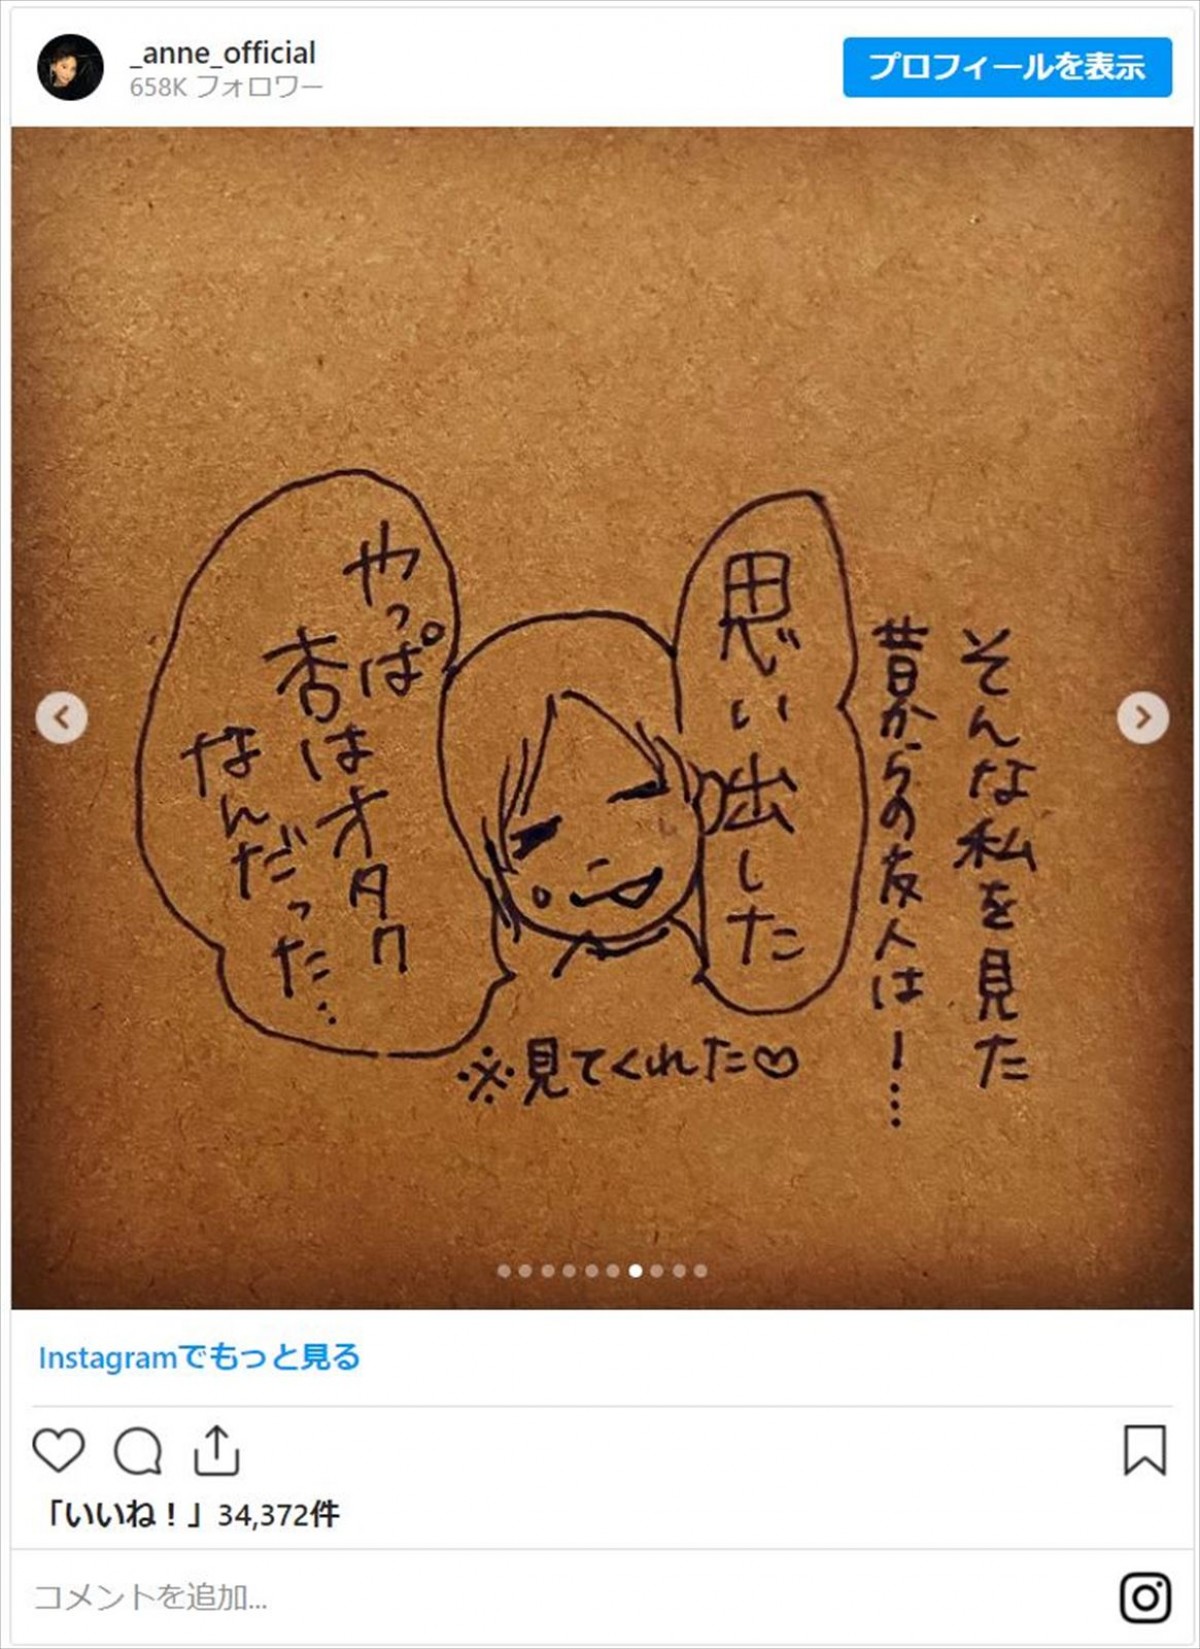 _anne_official
658K フォロワー
プロフィールを表示
そんな私を見た
昔からの友人は！…
思い出した
やっぱ
杏はオタク
なんだった…
※見てくれた♡
Instagramでもっと見る
「いいね！」34,372件
コメントを追加...